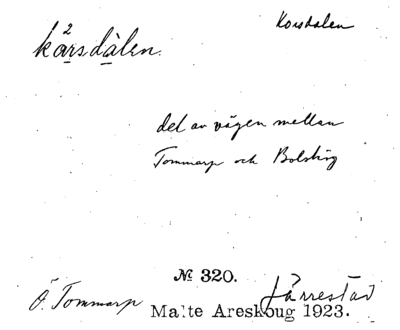 Korsdalen
kårsdàlen.
del av vägen mellan
Tommarp och Bolshög
№ 320.
Ö. Tommarp Järrestad
Malte Areskoug 1923.